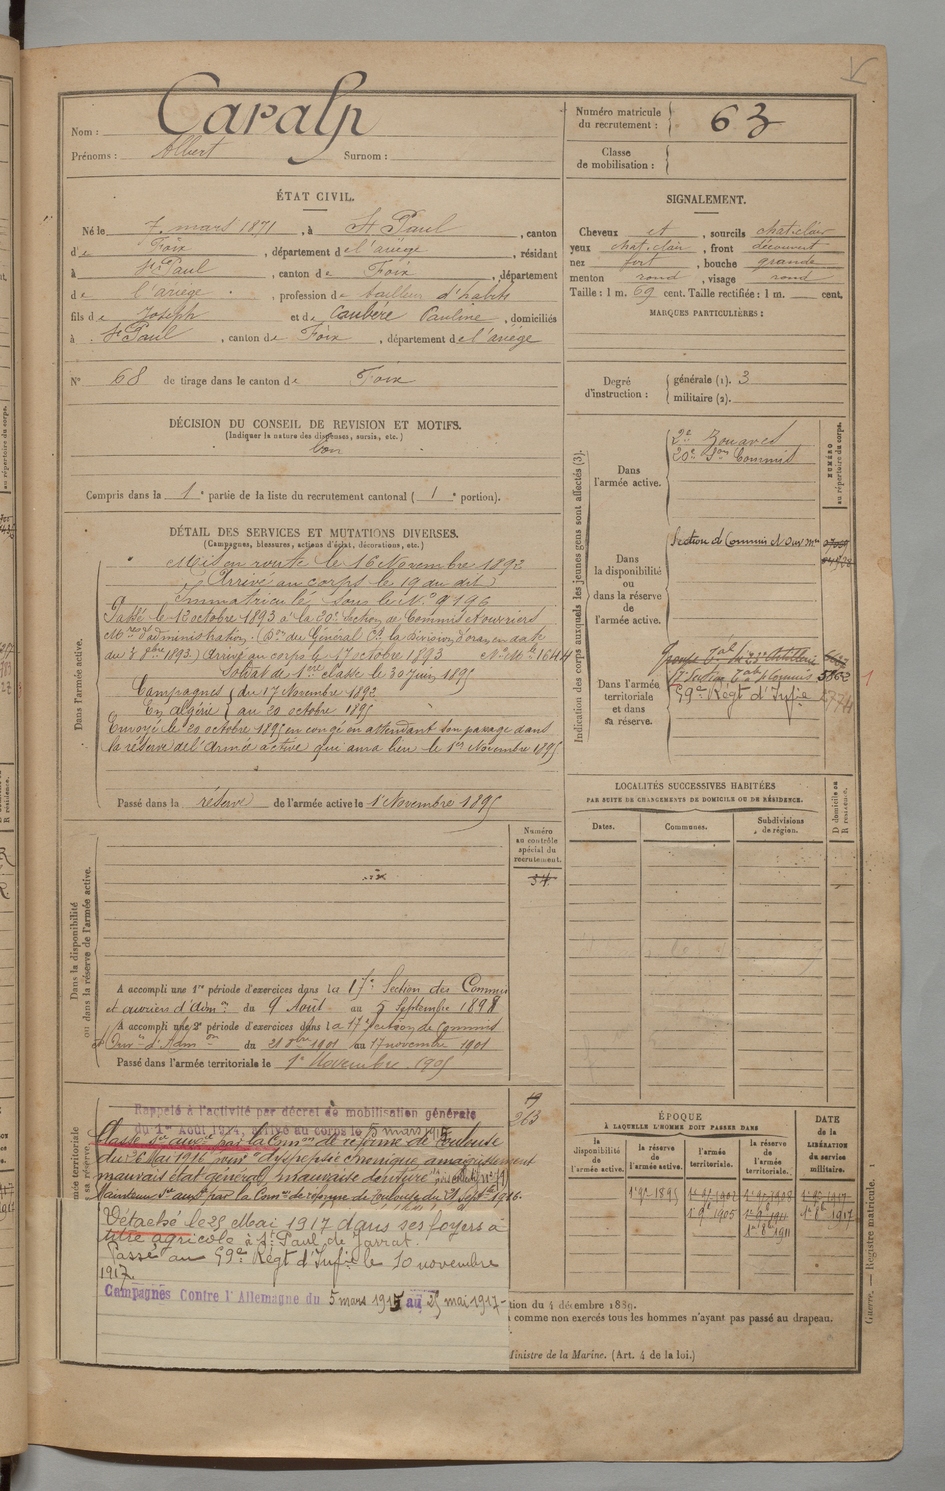 Nom : Caralp
Prénoms : Albert Surnom :
Numéro matricule du recrutement : 63
Classe de mobilisation :
ÉTAT CIVIL.
Né le 7 mars 1871, à St Paul, canton
de Foix, département de l'ariège, résidant
à St Paul, canton de Foix, département
de l'ariège, profession de tailleur d'habits
fils de Joseph et de Caubère Pauline, domiciliés
à St Paul, canton de Foix, département de l'ariège
No 68 de tirage dans le canton de Foix
SIGNALEMENT.
Cheveux et, sourcils chat. clair
yeux chat. clair, front découvert
nez fort, bouche grande
menton rond, visage rond
Taille : 1 m. 69 cent. Taille rectifiée : 1 m. cent.
MARQUES PARTICULIÈRES :
Degré d'instruction : générale (1). 3
militaire (2).
DÉCISION DU CONSEIL DE REVISION ET MOTIFS.
(Indiquer la nature des dispenses, sursis, etc.)
bon
Compris dans la 1e partie de la liste du recrutement cantonal (1e portion).
DÉTAIL DES SERVICES ET MUTATIONS DIVERSES.
(Campagnes, blessures, actions d'éclat, décorations, etc.)
Dans l'armée active.
Mis en route le 16 Novembre 1892
Arrivé au corps le 19 au dit
Immatriculé sous le No 9196
Passé le 13 octobre 1893 à la 20e Section de Commis et ouvriers
Mres d'administration. (Don du Général Ct la Division d'oran en date
du 3 8bre 1893.) Arrivé au corps le 17 octobre 1893 No Mle 1644
Soldat de 1ère Classe le 30 juin 1895
Campagnes du 17 Novembre 1892
En Algérie au 20 octobre 1895
Envoyé le 20 octobre 1895 en congé en attendant son passage dans
la réserve de l'Armée active qui aura lieu le 1er Novembre 1895
Passé dans la réserve de l'armée active le 1er Novembre 1895
Indication des corps auxquels les jeunes gens sont affectés (3).
NUMÉRO au répertoire du corps.
Dans l'armée active.
2e Zouaves
20e Son Commis
Dans la disponibilité ou dans la réserve de l'armée active.
Section de Commis et Ouv. mre
Dans l'armée territoriale et dans sa réserve.
Groupe Tal du 23e Artillerie
17e Section Tale de Commis 5863
59e Régt d'Infie
LOCALITÉS SUCCESSIVES HABITÉES
PAR SUITE DE CHANGEMENTS DE DOMICILE OU DE RÉSIDENCE.
Dates. Communes. Subdivisions de région. D domicile ou R résidence.
Dans la disponibilité ou dans la réserve de l'armée active.
Numéro au contrôle spécial du recrutement.
54
A accompli une 1re période d'exercices dans la 17e Section des Commis
et ouvriers d'Adm on du 9 Août au 5 Septembre 1898
A accompli une 2e période d'exercices dans la 17e section de Commis
et Ouv rs d'Adm on du 21 8bre 1901 au 17 novembre 1901
Passé dans l'armée territoriale le 1er Novembre 1905
213
Rappelé à l'activité par décret de mobilisation générale
du 1er Août 1914, arrivé au corps le 5 mars 1915
Classé Sce auxre par la Com on de réforme de Toulouse
du 26 Mai 1916 pour "dyspepsie chronique amaigrissement
mauvais état général, mauvaise denture"
Maintenu Sce auxre par la Com on de réforme de Toulouse du 21 Septbre 1916.
Détaché le 25 Mai 1917 dans ses foyers à
titre agricole à St Paul de Jarrat.
Passé au 59e Régt d'Infie le 10 novembre
1917.
Campagnes Contre l'Allemagne du 5 mars 1915 au 25 mai 1917
ÉPOQUE
À LAQUELLE L'HOMME DOIT PASSER DANS
la disponibilité de l'armée active.
la réserve de l'armée active.
l'armée territoriale.
la réserve de l'armée territoriale.
DATE de la LIBÉRATION du service militaire.
1er 9e 1895
1er 9e 1905
1er 8e 1911
1er 8e 1917
tion du 4 décembre 1889.
comme non exercés tous les hommes n'ayant pas passé au drapeau.
Ministre de la Marine. (Art. 4 de la loi.)
Guerre. — Registre matricule. 1